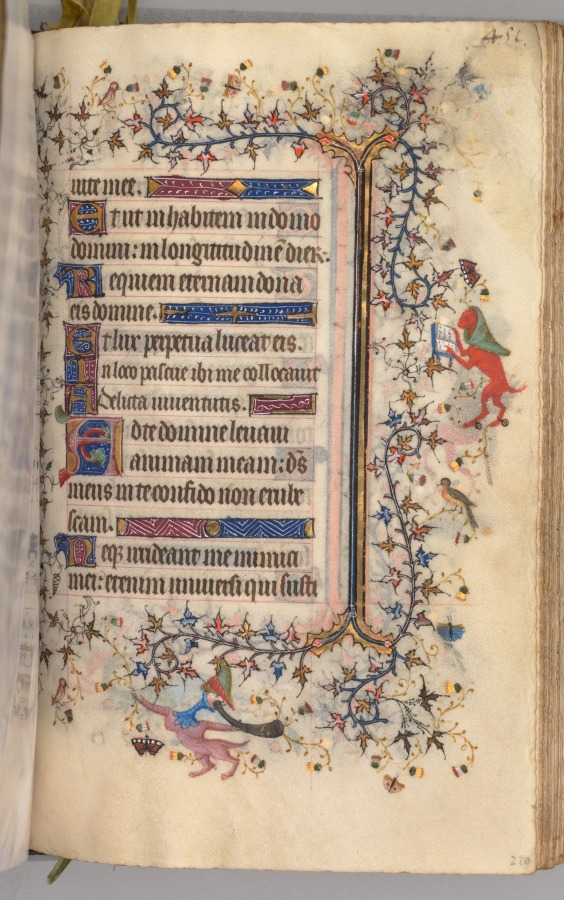 452.
uite mee.
Et ut inhabitem in domo
domini: in longitudinē dieꝝ.
Requiem eternam dona
eis domine.
Et lux perpetua luceat eis.
In loco pascue ibi me collocavit
Delicta iuuentutis.
Adte domine leuaui
animam meam: ds̄
meus in te confido non erube
scam.
Neqꝫ irrideant me inimici
mei: etenim uniuersi qui susti